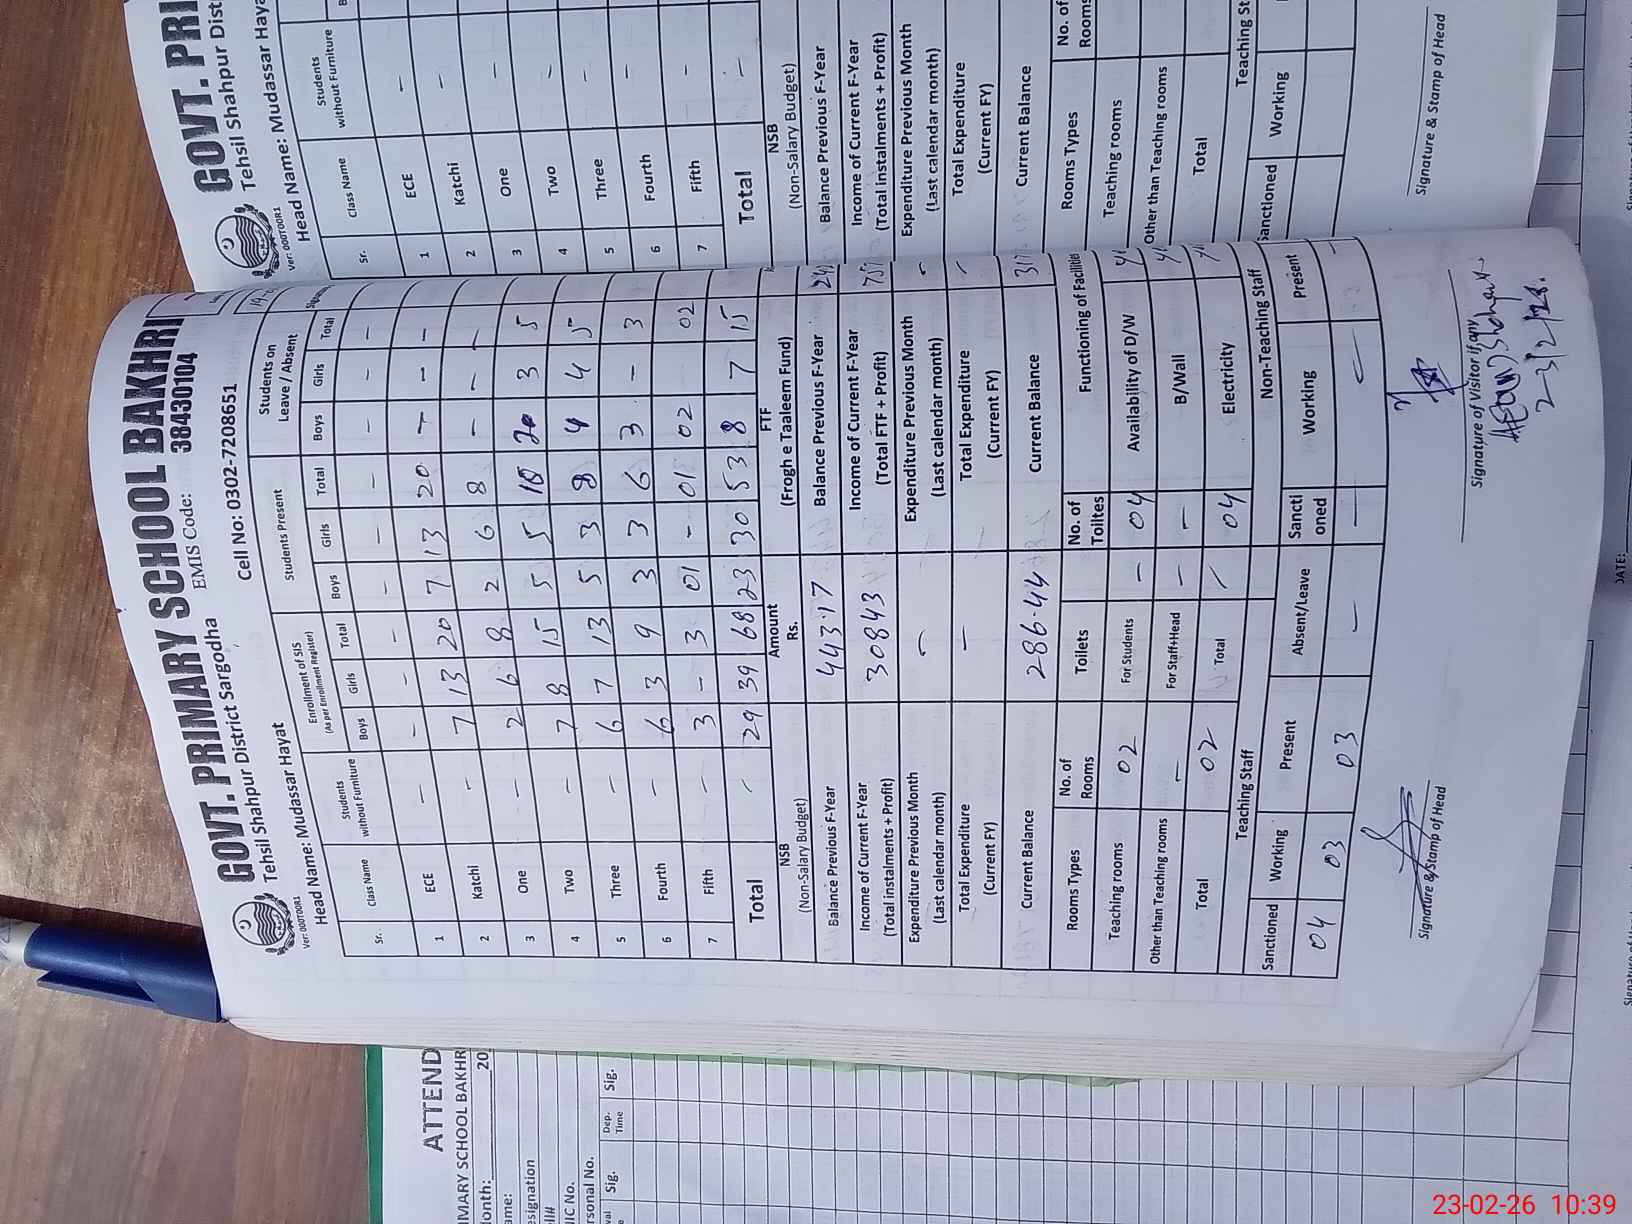 GOVT. PRIMARY SCHOOL BAKHRI
Tehsil Shahpur District Sargodha EMIS Code: 38430104
Ver: 000T00R1
Head Name: Mudassar Hayat Cell No: 0302-7208651
Sr. Class Name Students without Furniture Enrollment of SIS (As per Enrollment Register) Students Present Students on Leave / Absent
Boys Girls Total Boys Girls Total Boys Girls Total
1 ECE - - - - - - - - - -
2 Katchi - 7 13 20 7 13 20 - - -
3 One - 2 6 8 2 6 8 - - -
4 Two - 7 8 15 5 5 10 2 3 5
5 Three - 6 7 13 5 3 8 4 5
6 Fourth - 6 3 9 3 3 6 3 - 3
7 Fifth - 3 - 3 01 - 01 02 02
Total - 29 39 68 23 30 53 8 7 15
NSB (Non-Salary Budget) Amount Rs. FTF (Frogh e Taaleem Fund)
Balance Previous F-Year 443.17 Balance Previous F-Year
Income of Current F-Year (Total instalments + Profit) 30843 Income of Current F-Year (Total FTF + Profit)
Expenditure Previous Month (Last calendar month) - Expenditure Previous Month (Last calendar month) -
Total Expenditure (Current FY) - Total Expenditure (Current FY) -
Current Balance 286.44 Current Balance
Rooms Types No. of Rooms Toilets No. of Toiltes Functioning of Facilities
Teaching rooms 02 For Students - 04 Availability of D/W
Other than Teaching rooms - For Staff+Head - - B/Wall
Total 02 Total / 04 Electricity
Teaching Staff Non-Teaching Staff
Sanctioned Working Present Absent/Leave Sanctioned Working Present
04 03 03 - - -
Signature & Stamp of Head Signature of Visitor if any
23/2/26.
GOVT. PRI
Tehsil Shahpur Dist
Ver: 000T00R1
Head Name: Mudassar Haya
Sr. Class Name Students without Furniture
1 ECE -
2 Katchi -
3 One -
4 Two -
5 Three -
6 Fourth -
7 Fifth -
Total -
NSB
(Non-Salary Budget)
Balance Previous F-Year
Income of Current F-Year
(Total instalments + Profit)
Expenditure Previous Month
(Last calendar month)
Total Expenditure
(Current FY)
Current Balance
Rooms Types No. of Rooms
Teaching rooms
Other than Teaching rooms
Total
Teaching St
Sanctioned Working
Signature & Stamp of Head
ATTEND
IMARY SCHOOL BAKHR
onth: 20
ame:
esignation
IC No.
rsonal No.
Sig. Dep. Time Sig.
DATE:
23-02-26 10:39